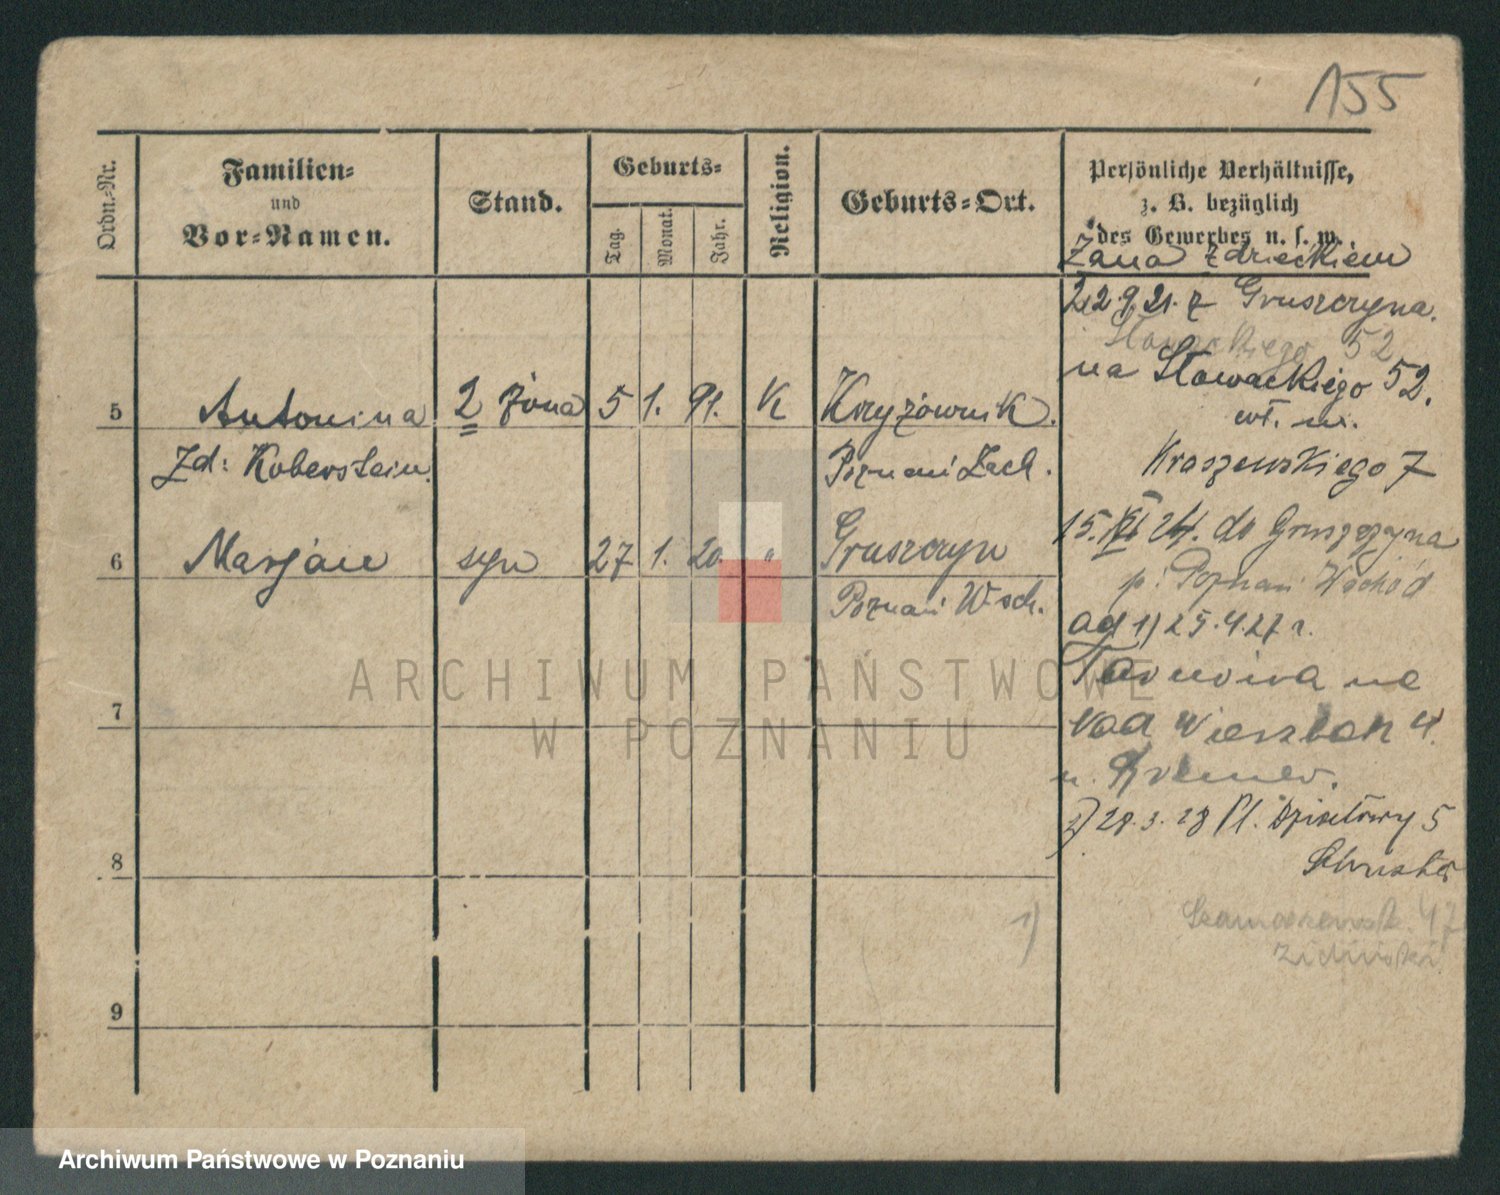 155
Ordn.-Nr.
Familien-
und
Vor-Namen.
Stand.
Geburts-
Tag.
Monat.
Jahr.
Religion.
Geburts-Ort.
Persönliche Verhältnisse,
z. B. bezüglich
des Gewerbes u. s. w.
Żana z dzieckiem
22.9.21. z Gruszczyna.
Słowackiego 52
na Słowackiego 52.
wł. m.
Kraszewskiego 7
5 Antonina 2 żona 5 1. 91. K Krzyżownik.
Zd: Koberstein. Poznań Zach.
6 Marjan syn 27 1. 20. " Gruszczyn
Poznań Wsch.
15. XI 24. do Gruszczyna
p: Poznań Wschód
ad 1) 25.4.27 r.
na
4.
u.
2) 28.3.28 Pl. Działowy 5
47
1)
7
8
9
ARCHIWUM PAŃSTWOWE
W POZNANIU
Archiwum Państwowe w Poznaniu